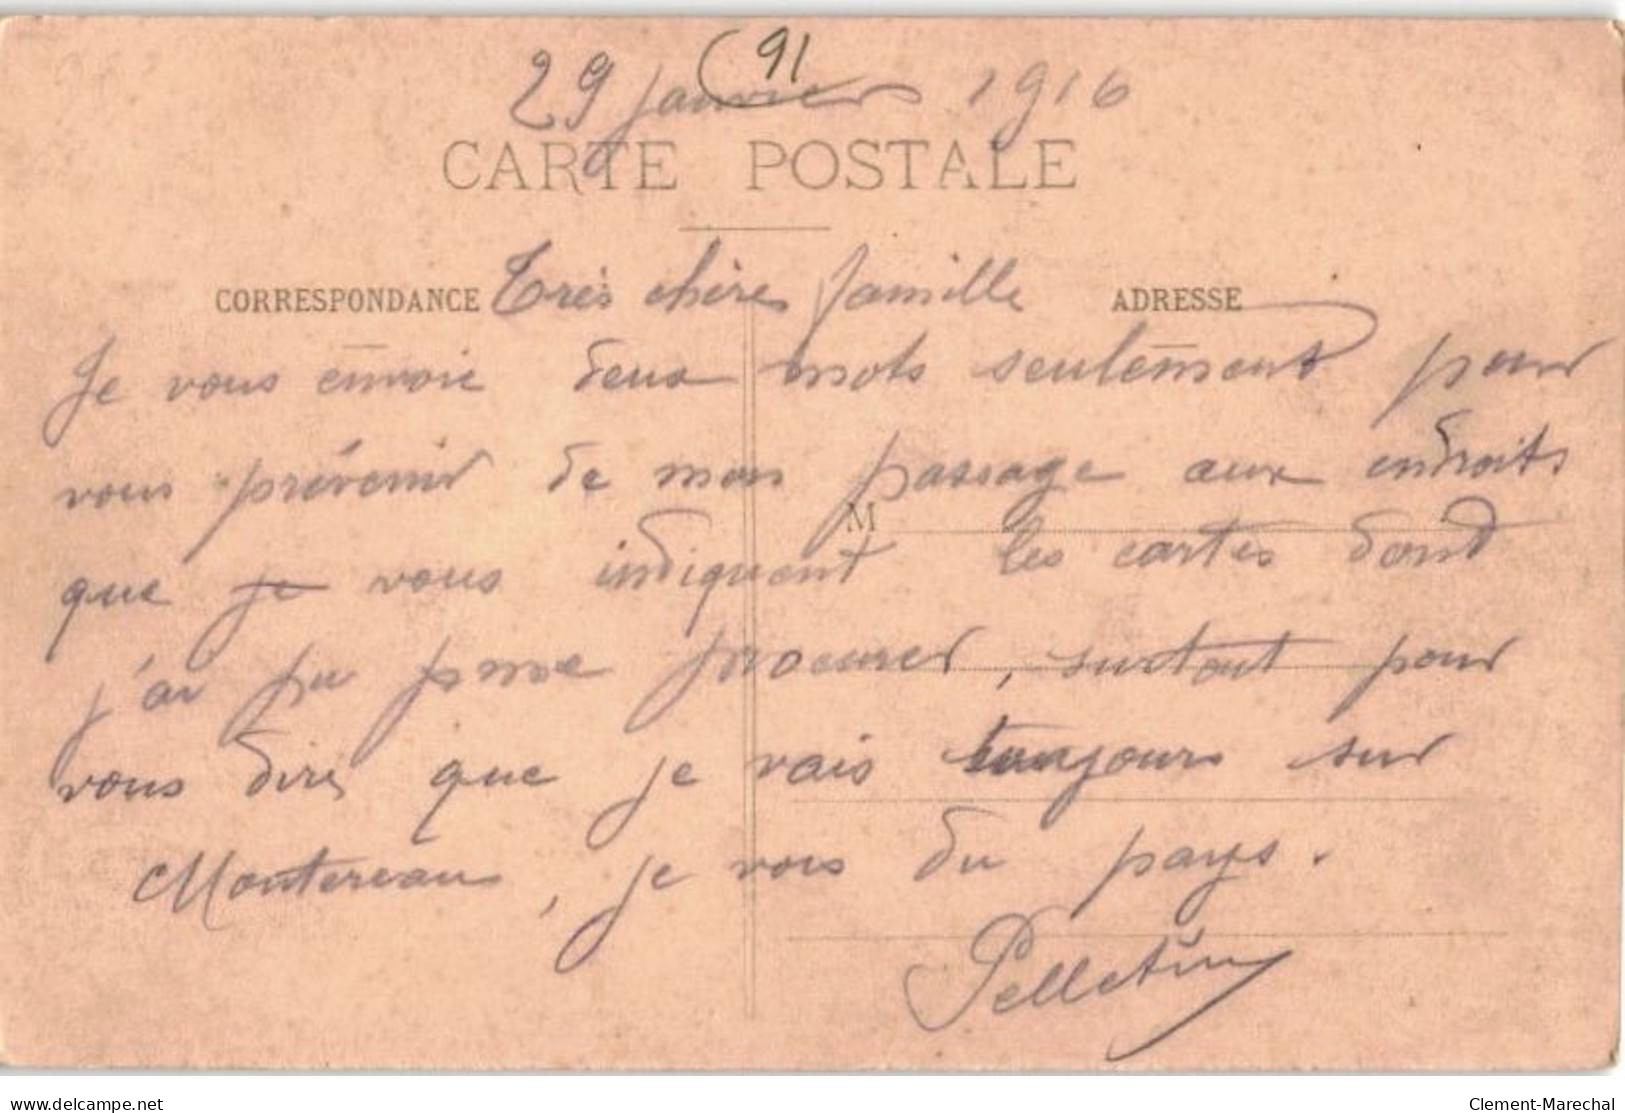 91
29 janvier 1916
CARTE POSTALE
CORRESPONDANCE Très chère famille ADRESSE
Je vous envoie deux mots seulement pour
vous prévenir de mon passage aux endroits
M
que je vous indiquent les cartes dond
j'ai pu pme procurer, surtout pour
vous dire que je vais toujours sur
Montereau, je vois du pays.
Pelletin
delcampe.net
Clement-Marechal